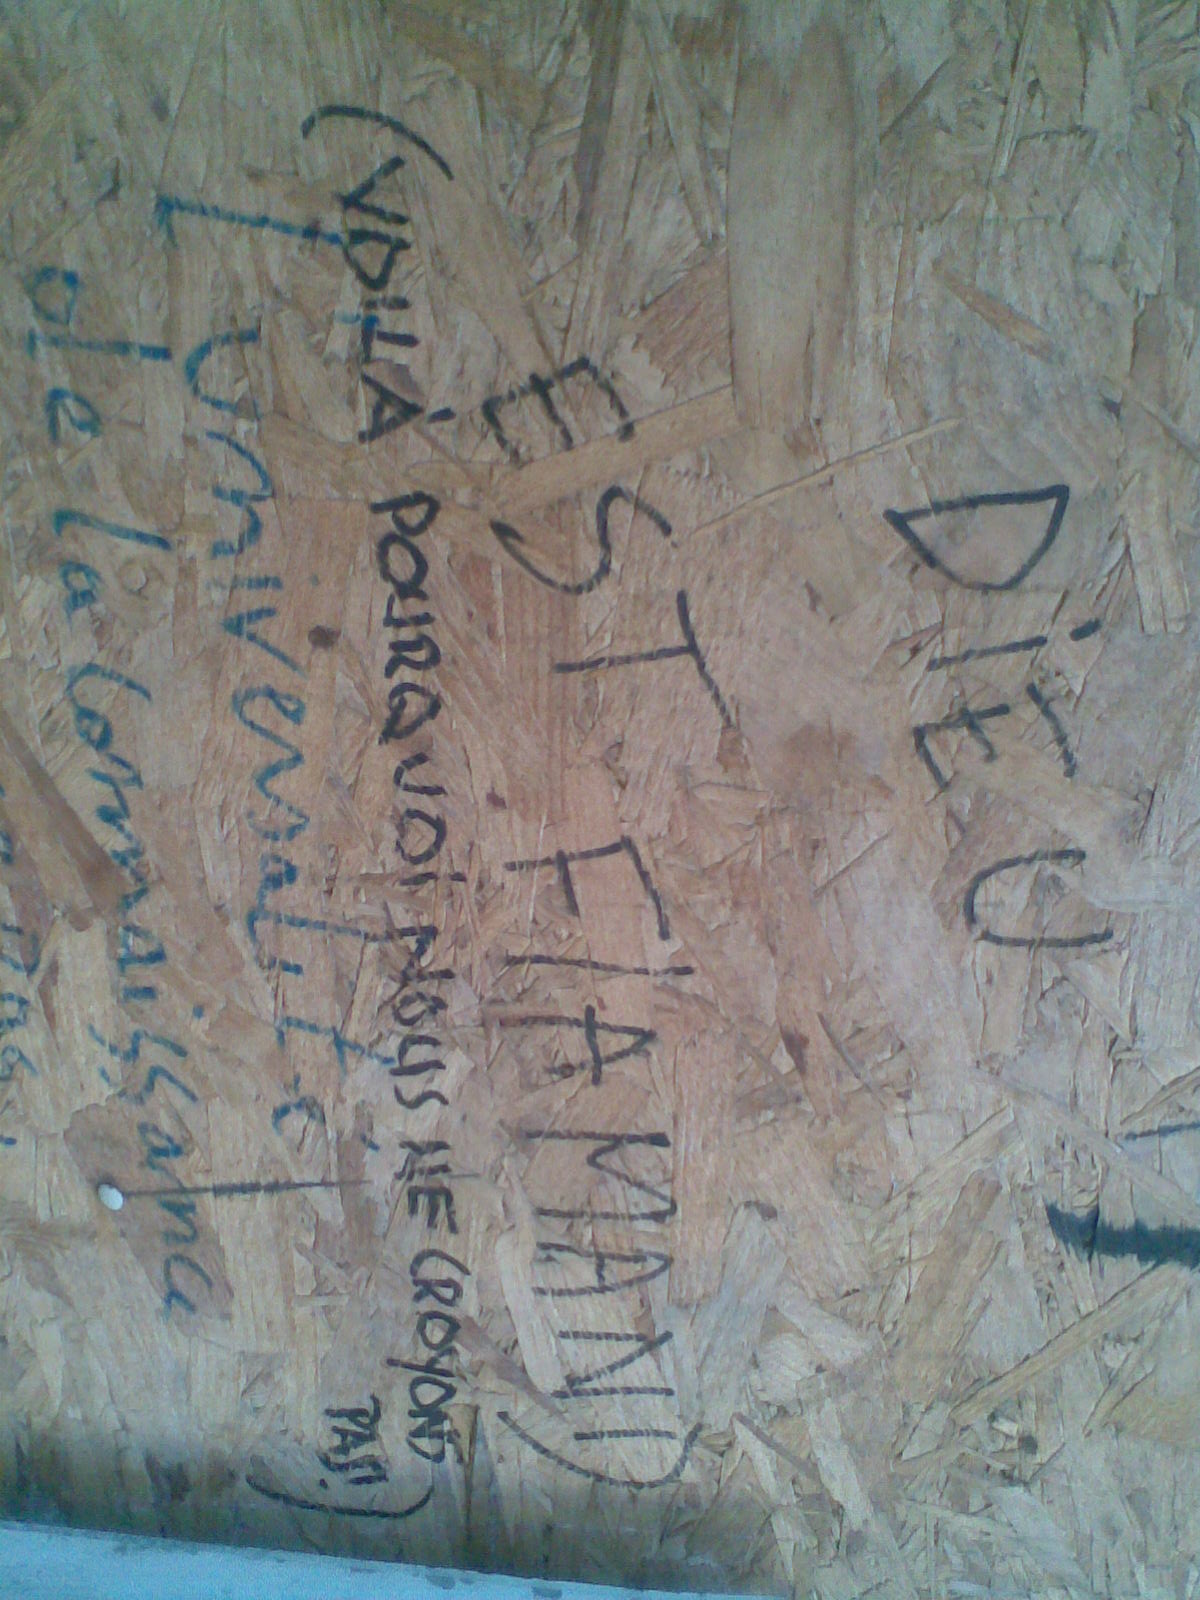 DiEU
EST FLAMAND
(VOiLÀ POURQUOi NOUS NE CROYONS
PAS!)
L'Universalité
de la Connaissance